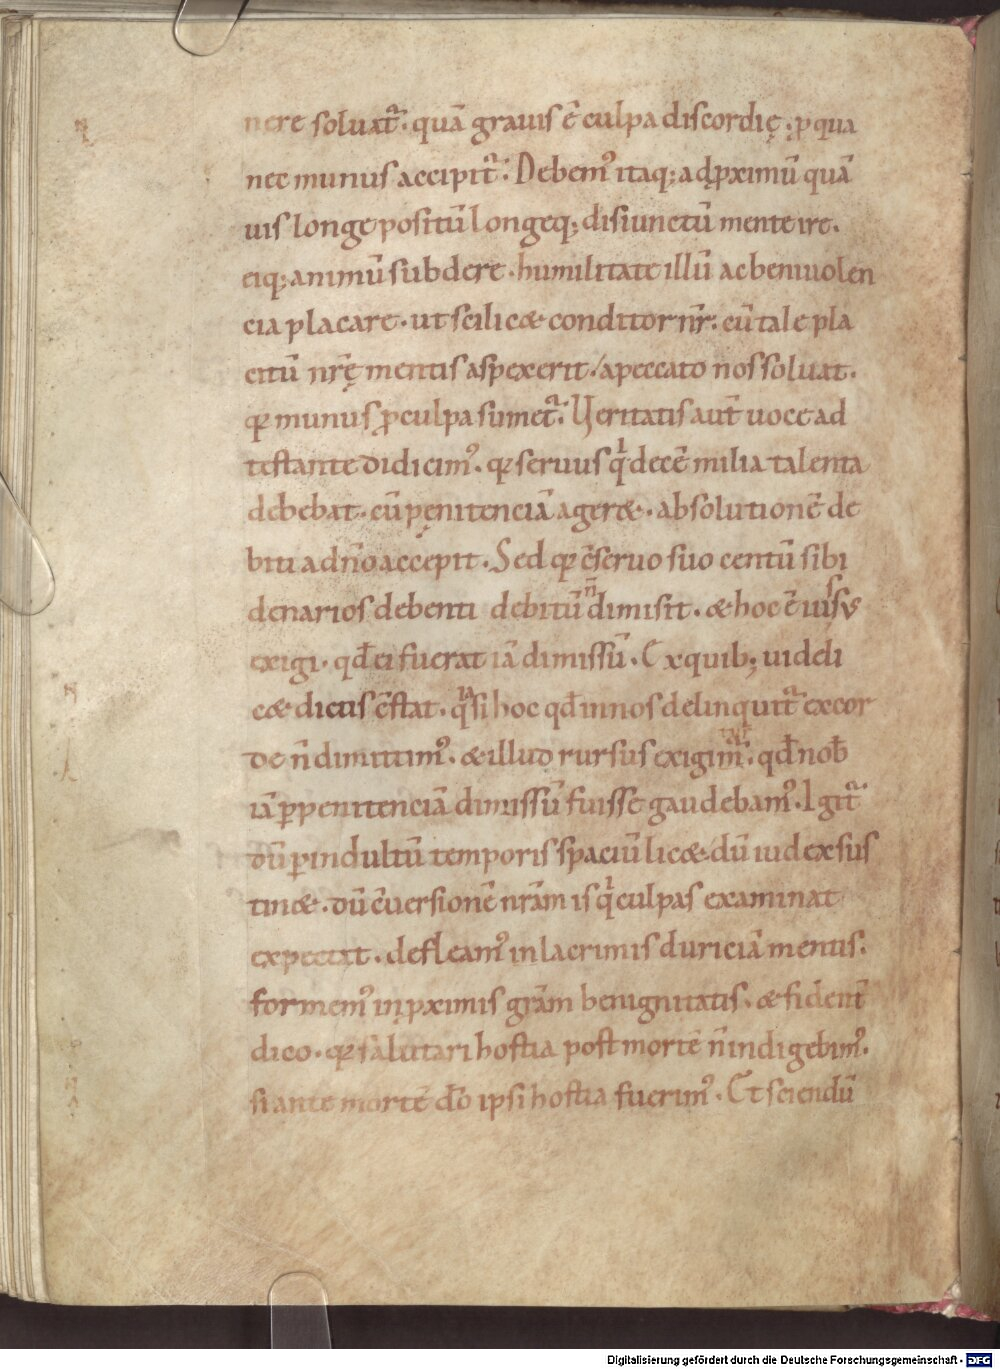 nere soluat᷑. quā grauis ē culpa discordię. ꝓ qua
nec munus accipit᷑. Debem᾽ itaq; ad ꝓximū quā
uis longe positū longeq; disiunctū mente ire.
eiq; animū subdere. humilitate illū ac beniuolen
cia placare. ut scilicet conditor nr̄. cū tale pla
citū nr̄ę mentis aspexerit. a peccato nos soluat.
qr munus ꝓ culpa sumet᷑. Veritatis aut̄ uoce ad
testante didicim᾽. qr seruus q̇ decē milia talenta
debebat. cū pęnitenciā ageret. absolutionē de
biti a dn̄o accepit. Sed qr c̄seruo suo centū sibi
denarios debenti debitū n̄ dimisit. & hoc ē uissus
exigi. qd̄ ei fuerat iā dimissū. Ex quib; uideli
cet dictis c̄stat. qa si hoc qd̄ in nos delinquit᷑ ex cor
de n̄ dimittim᾽. & illud rursus exigim̄ tur. qd̄ nob̄
iā ꝑ penitenciā dimissū fuisse gaudebam᾽. Igit᷑
dū ꝑ indultū temporis spaciū licet. dū iudex sus
tinet. dū c̄uersionē nr̄am is q̇ culpas examinat
expectat. defleam᾽ in lacrimis duriciā mentis.
formem᾽ in ꝓximis gr̄am benignitatis. & fident̄
dico. qr salutari hostia post mortē n̄ indigebim᾽.
si ante mortē d̄o ipsi hostia fuerim᾽. Et sciendū
Digitalisierung gefördert durch die Deutsche Forschungsgemeinschaft - DFG